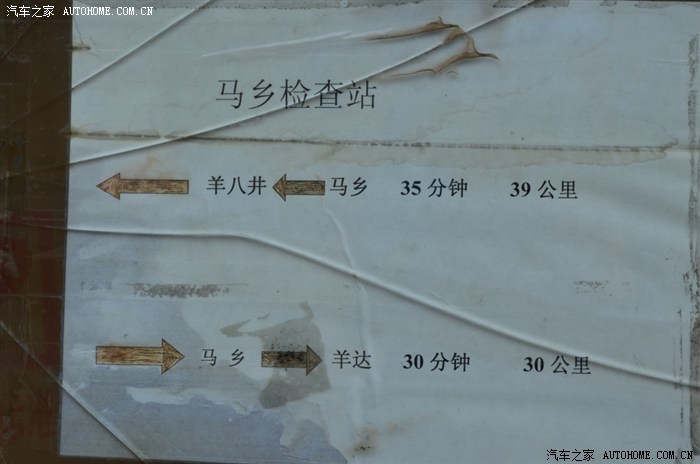 汽车之家 AUTOHOME.COM.CN
马乡检查站
羊八井 马乡 35分钟 39公里
马乡 羊达 30分钟 30公里
汽车之家 AUTOHOME.COM.CN